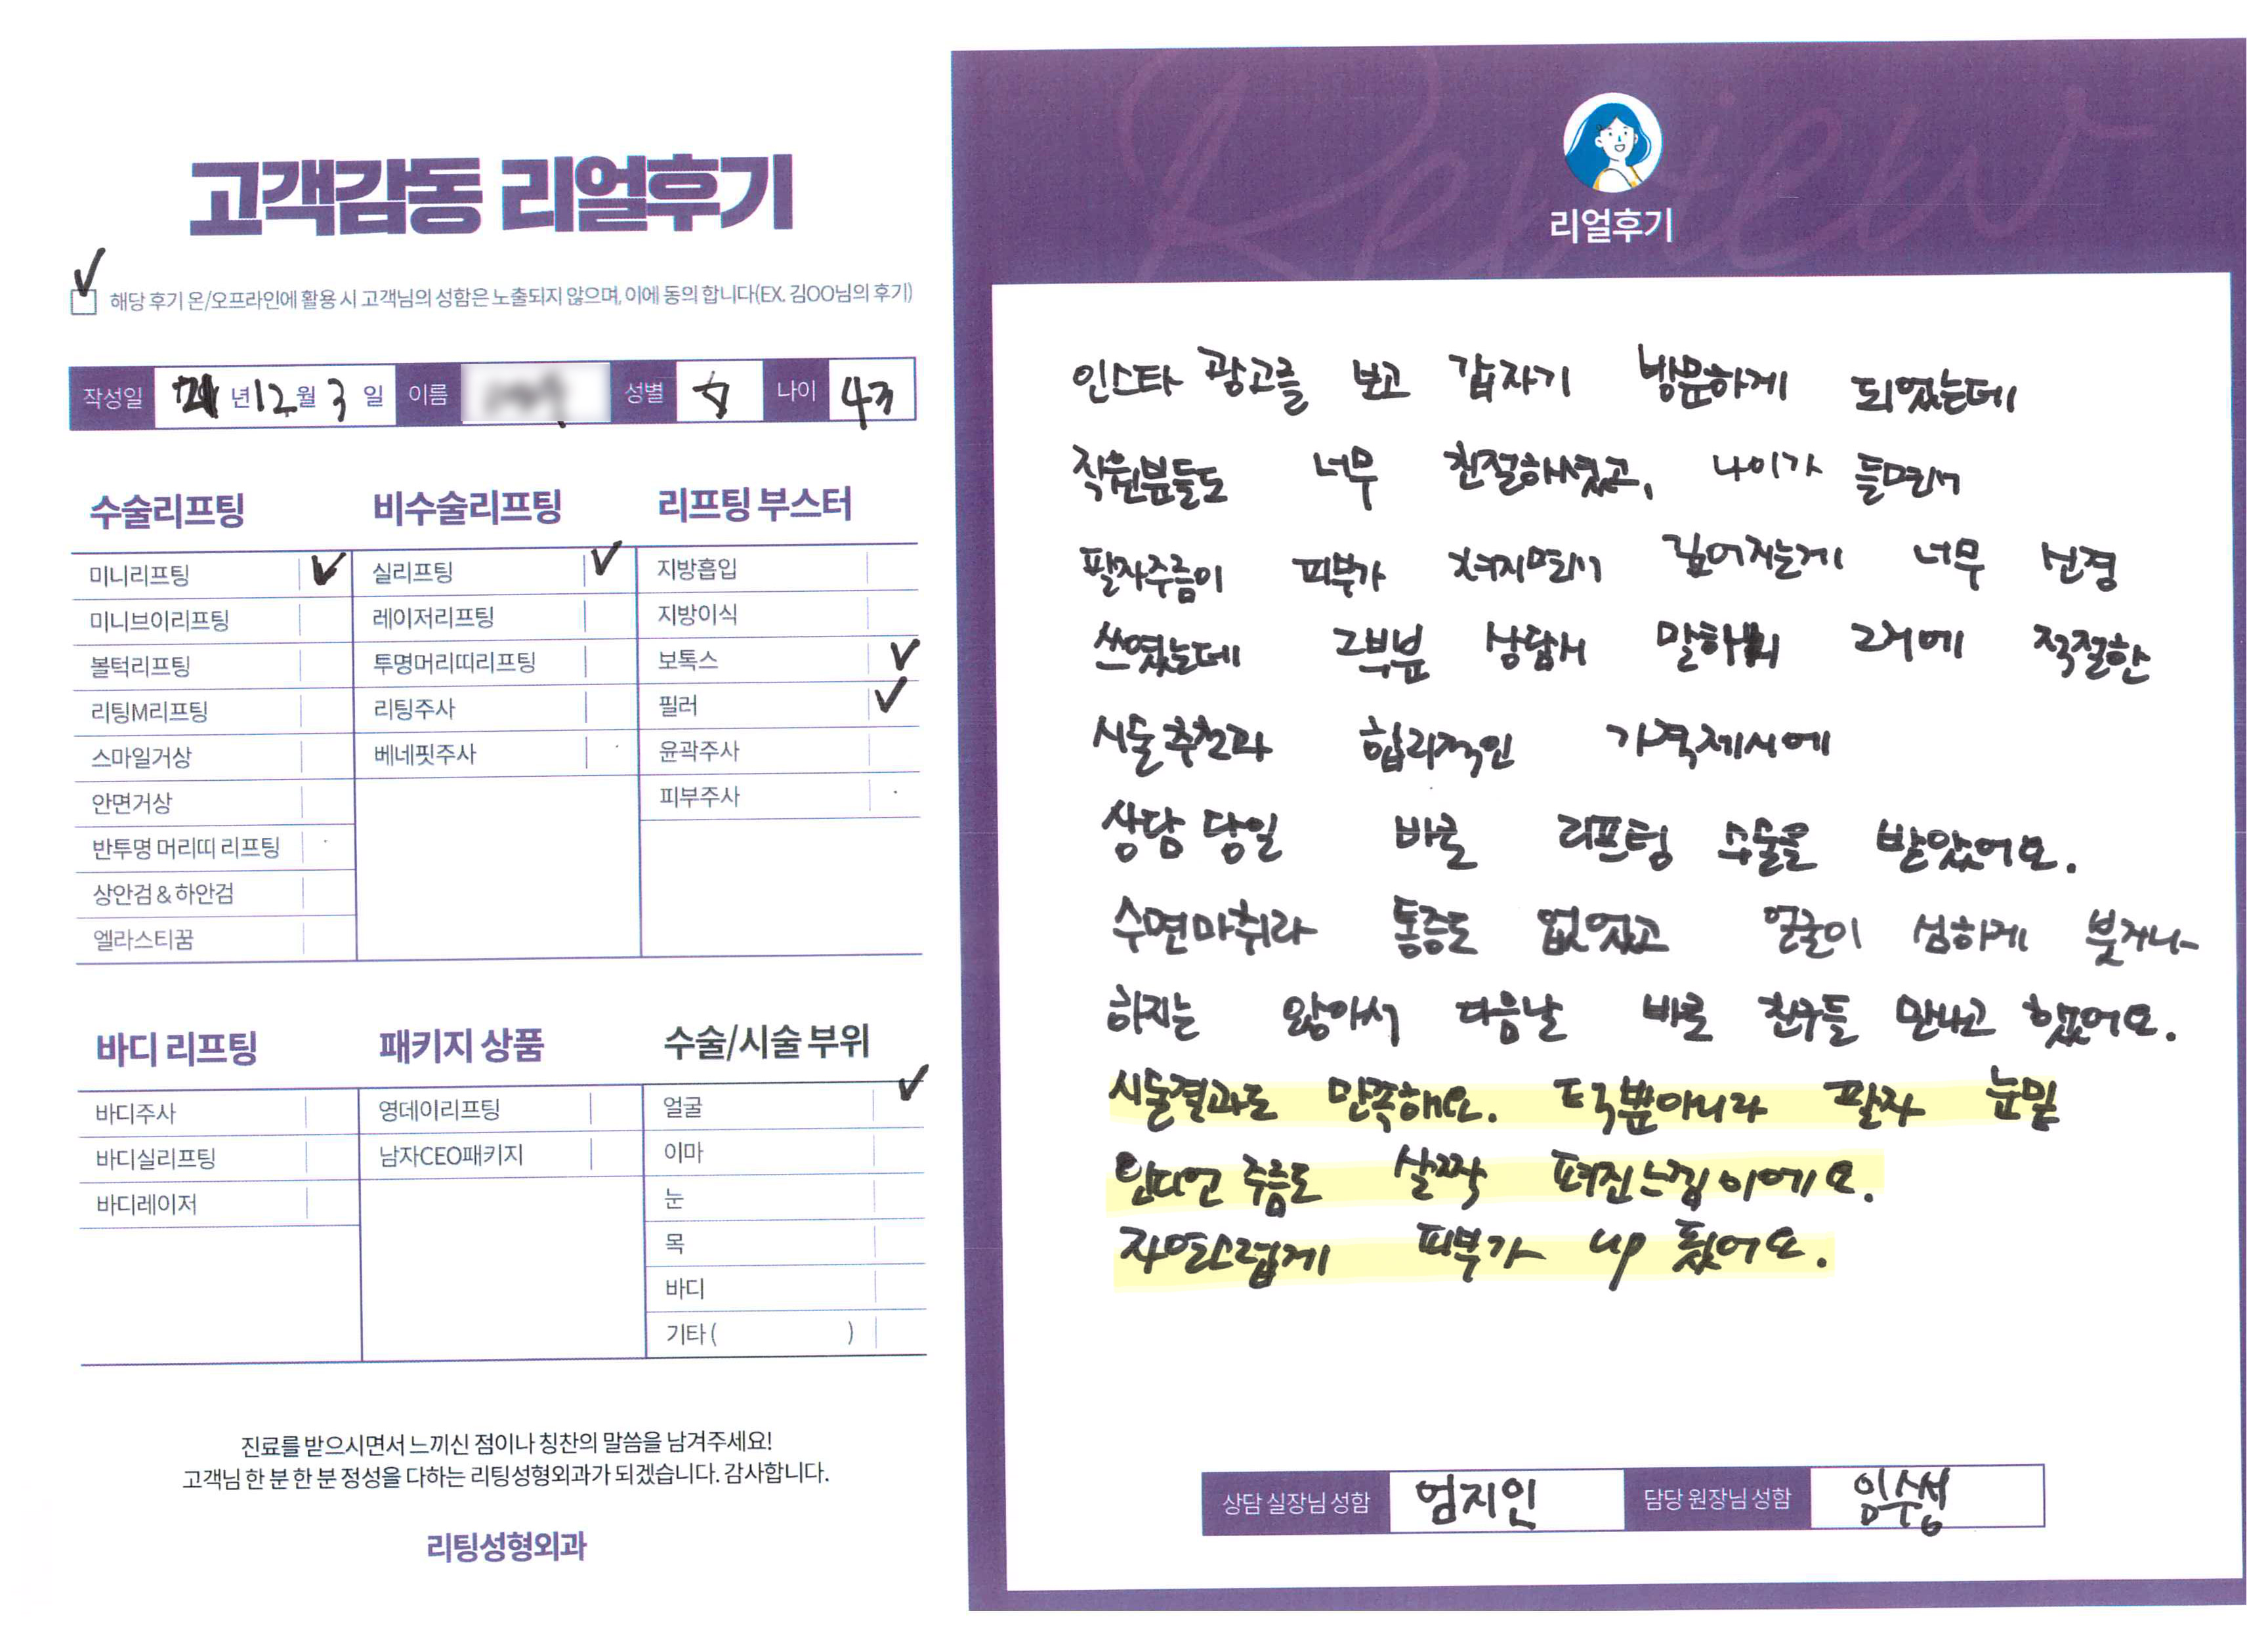 고객감동 리얼후기
해당 후기 온/오프라인에 활용 시 고객님의 성함은 노출되지 않으며, 이에 동의 합니다(EX. 김OO님의 후기)
작성일 년 12월 3일 이름 성별 나이 43
수술리프팅
미니리프팅
미니브이리프팅
볼턱리프팅
리팅M리프팅
스마일거상
안면거상
반투명 머리띠 리프팅
상안검 & 하안검
엘라스티꿈
비수술리프팅
실리프팅
레이저리프팅
투명머리띠리프팅
리팅주사
베네핏주사
리프팅 부스터
지방흡입
지방이식
보톡스
필러
윤곽주사
피부주사
바디 리프팅
바디주사
바디실리프팅
바디레이저
패키지 상품
영데이리프팅
남자CEO패키지
수술/시술 부위
얼굴
이마
눈
목
바디
기타 ( )
진료를 받으시면서 느끼신 점이나 칭찬의 말씀을 남겨주세요!
고객님 한 분 한 분 정성을 다하는 리팅성형외과가 되겠습니다. 감사합니다.
리팅성형외과
Review
리얼후기
인스타 광고를 보고 갑자기 방문하게 되었는데
직원분들도 너무 친절하셨고, 나이가 들면서
팔자주름이 피부가 쳐지면서 깊어지는게 너무 신경
쓰였는데 그부분 상담시 말하니 그거에 적절한
시술추천과 합리적인 가격제시에
상담 당일 바로 리프팅 수술을 받았어요.
수면마취라 통증도 없었고 얼굴이 심하게 붓거나
하지는 않아서 다음날 바로 친구들 만나고 했어요.
시술결과도 만족해요. 턱뿐아니라 팔자 눈밑
인디언 주름도 살짝 펴진느낌이에요.
자연스럽게 피부가 up 됬어요.
상담 실장님 성함 엄지인 담당 원장님 성함 임수성